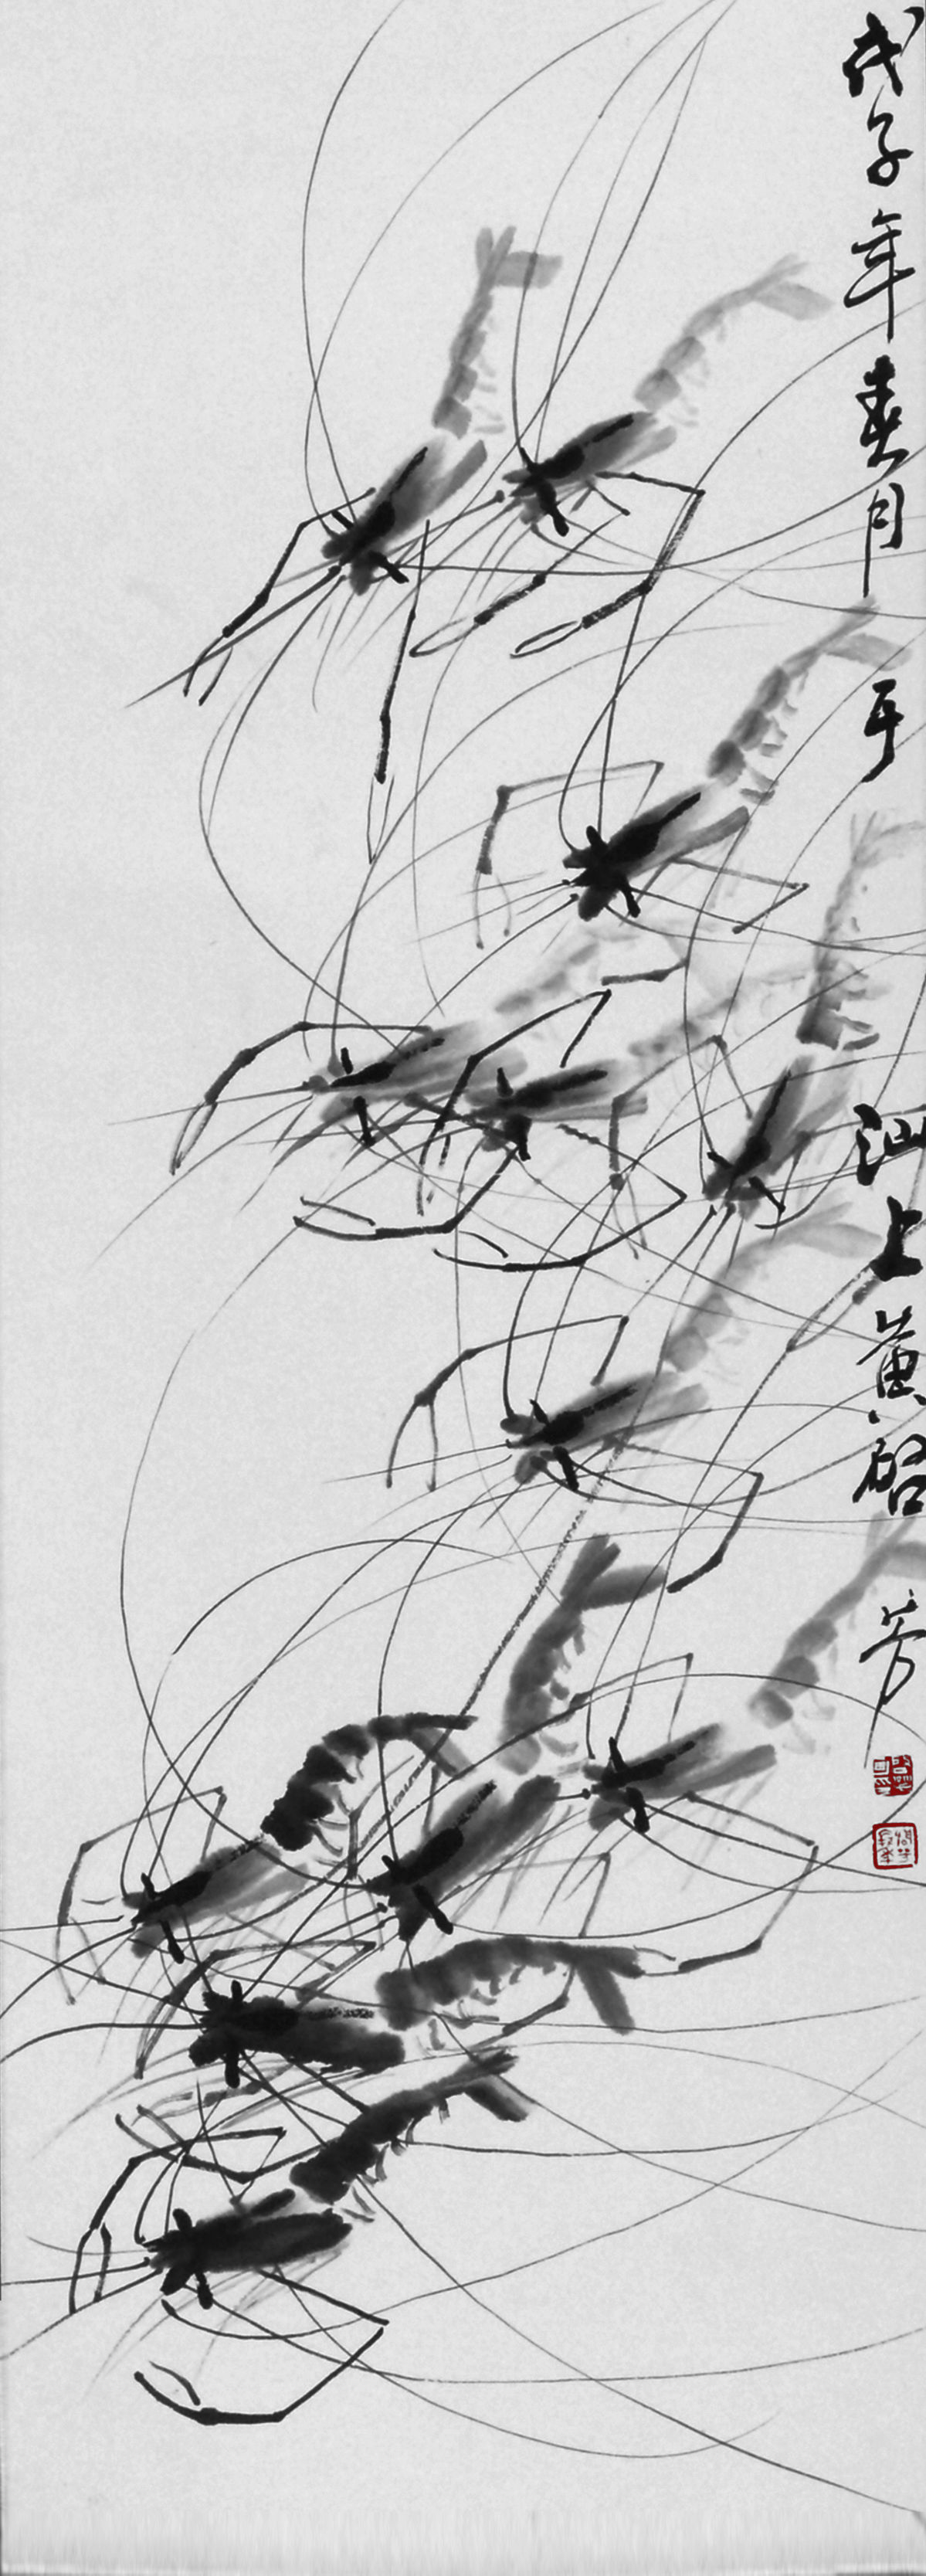 戊子年春月于汕上黄启芳